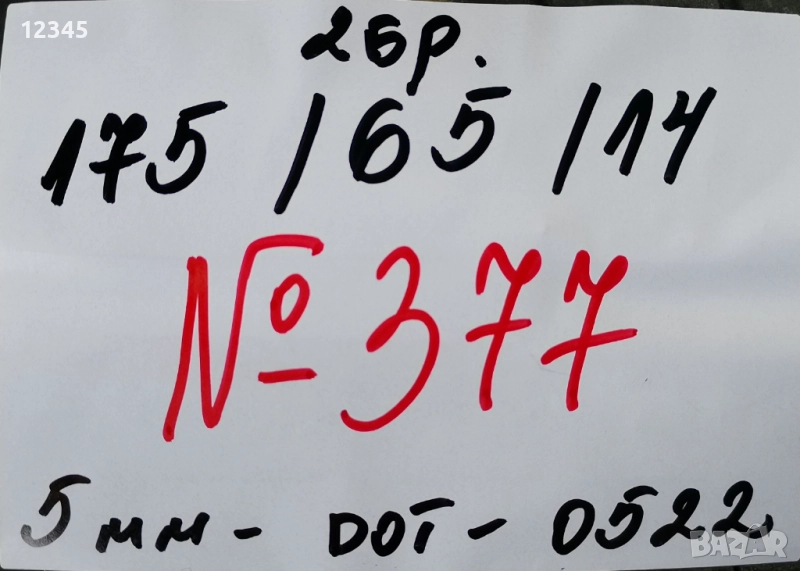 12345
2бр.
175 / 65 / 14
№ 377
5мм - DOT - 0522,
BAZAR